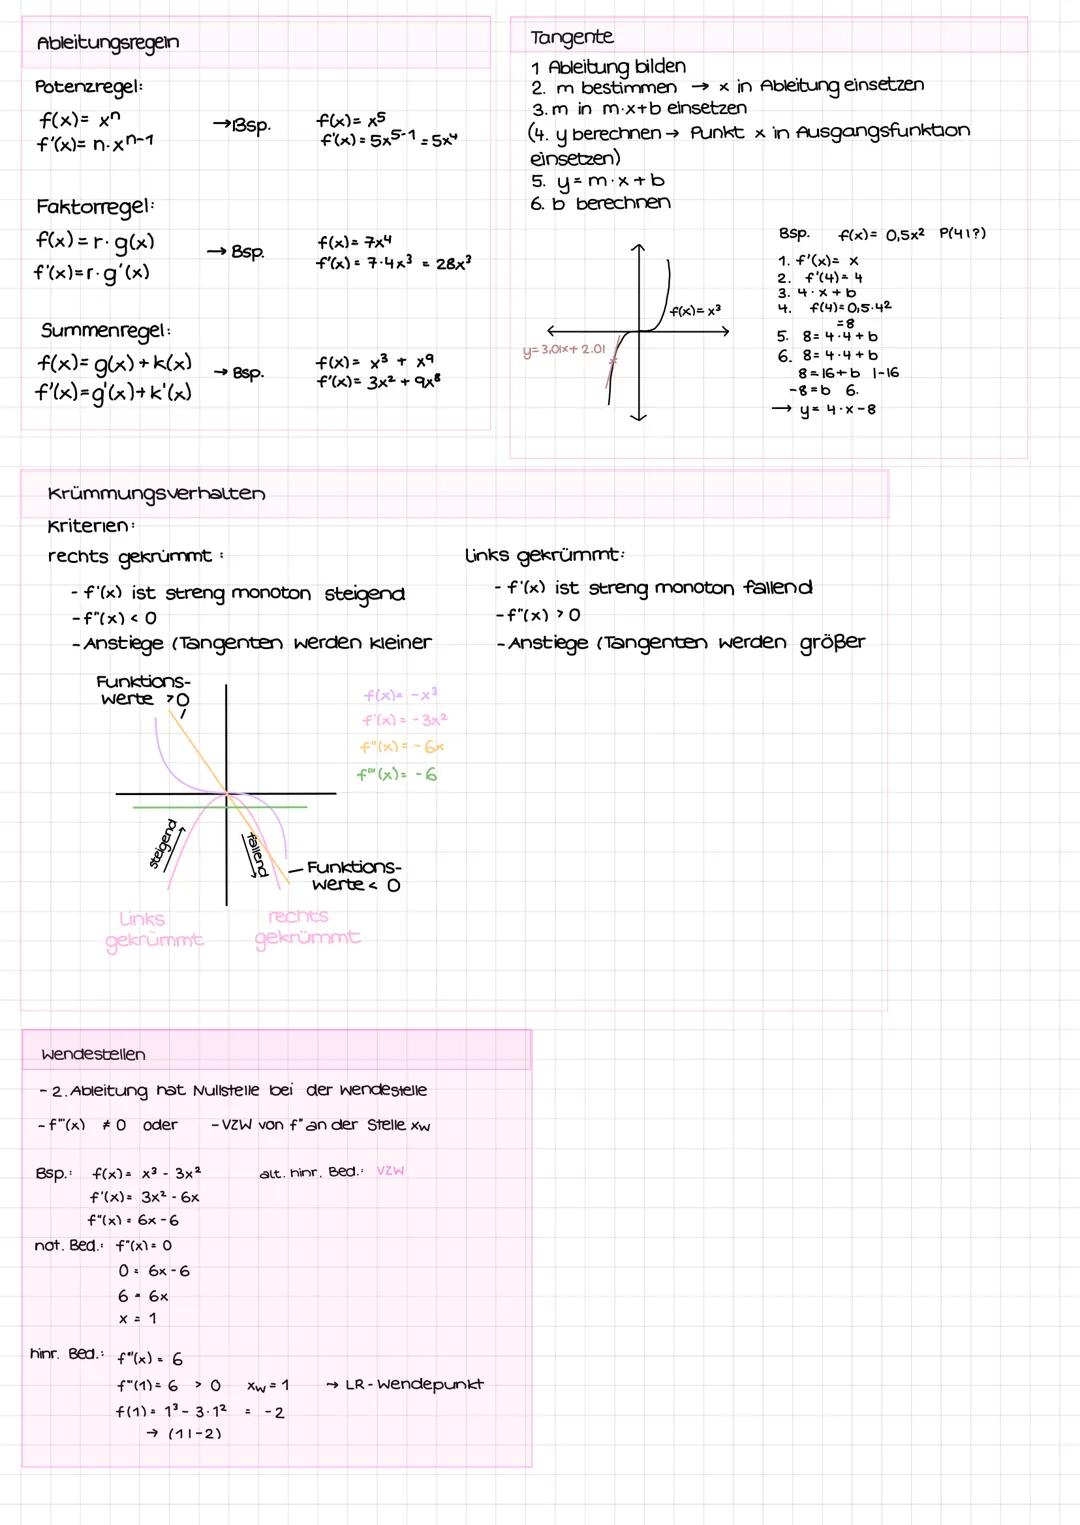 Ableitungsregeln
Potenzregel:
f(x)= xⁿ
f'(x)= n·xⁿ⁻¹
→Bsp.
f(x)= x⁵
f'(x)= 5x⁵⁻¹ = 5x⁴
Faktorregel:
f(x)=r·g(x)
f'(x)=r·g'(x)
→ Bsp.
f(x)= 7x⁴
f'(x)= 7·4x³ = 28x³
Summenregel:
f(x)= g(x)+k(x)
f'(x)=g'(x)+k'(x)
→ Bsp.
f(x)= x³ + x⁹
f'(x)= 3x² + 9x⁸
Tangente
1 Ableitung bilden
2. m bestimmen → x in Ableitung einsetzen
3. m in m·x+b einsetzen
(4. y berechnen → Punkt x in Ausgangsfunktion
einsetzen)
5. y= m·x+b
6. b berechnen
f(x)= x³
y=3,01x+2.01
Bsp. f(x)= 0,5x² P(4|?)
1. f'(x)= x
2. f'(4)= 4
3. 4·x+b
4. f(4)=0,5·4²
=8
5. 8=4·4+b
6. 8=4·4+b
8=16+b |-16
-8=b 6.
→ y= 4·x-8
Krümmungsverhalten
Kriterien:
rechts gekrümmt:
- f'(x) ist streng monoton steigend
- f''(x) < 0
- Anstiege (Tangenten werden kleiner
Links gekrümmt:
- f'(x) ist streng monoton fallend
- f''(x) > 0
- Anstiege (Tangenten werden größer
Funktions-
werte >0
f(x)= -x³
f'(x)= -3x²
f''(x)= -6x
f'''(x)= -6
steigend
fallend
Funktions-
werte < 0
Links
gekrümmt
rechts
gekrümmt
Wendestellen
- 2. Ableitung hat Nullstelle bei der Wendestelle
- f'''(x) ≠ 0 oder - VZW von f'' an der Stelle xw
Bsp.: f(x)= x³ - 3x² alt. hinr. Bed.: VZW
f'(x)= 3x² - 6x
f''(x)= 6x-6
not. Bed.: f''(x)= 0
0= 6x-6
6 = 6x
x = 1
hinr. Bed.: f'''(x)= 6
f'''(1)= 6 > 0 xw=1 → LR-Wendepunkt
f(1)= 1³- 3·1² = -2
→ (1|-2)